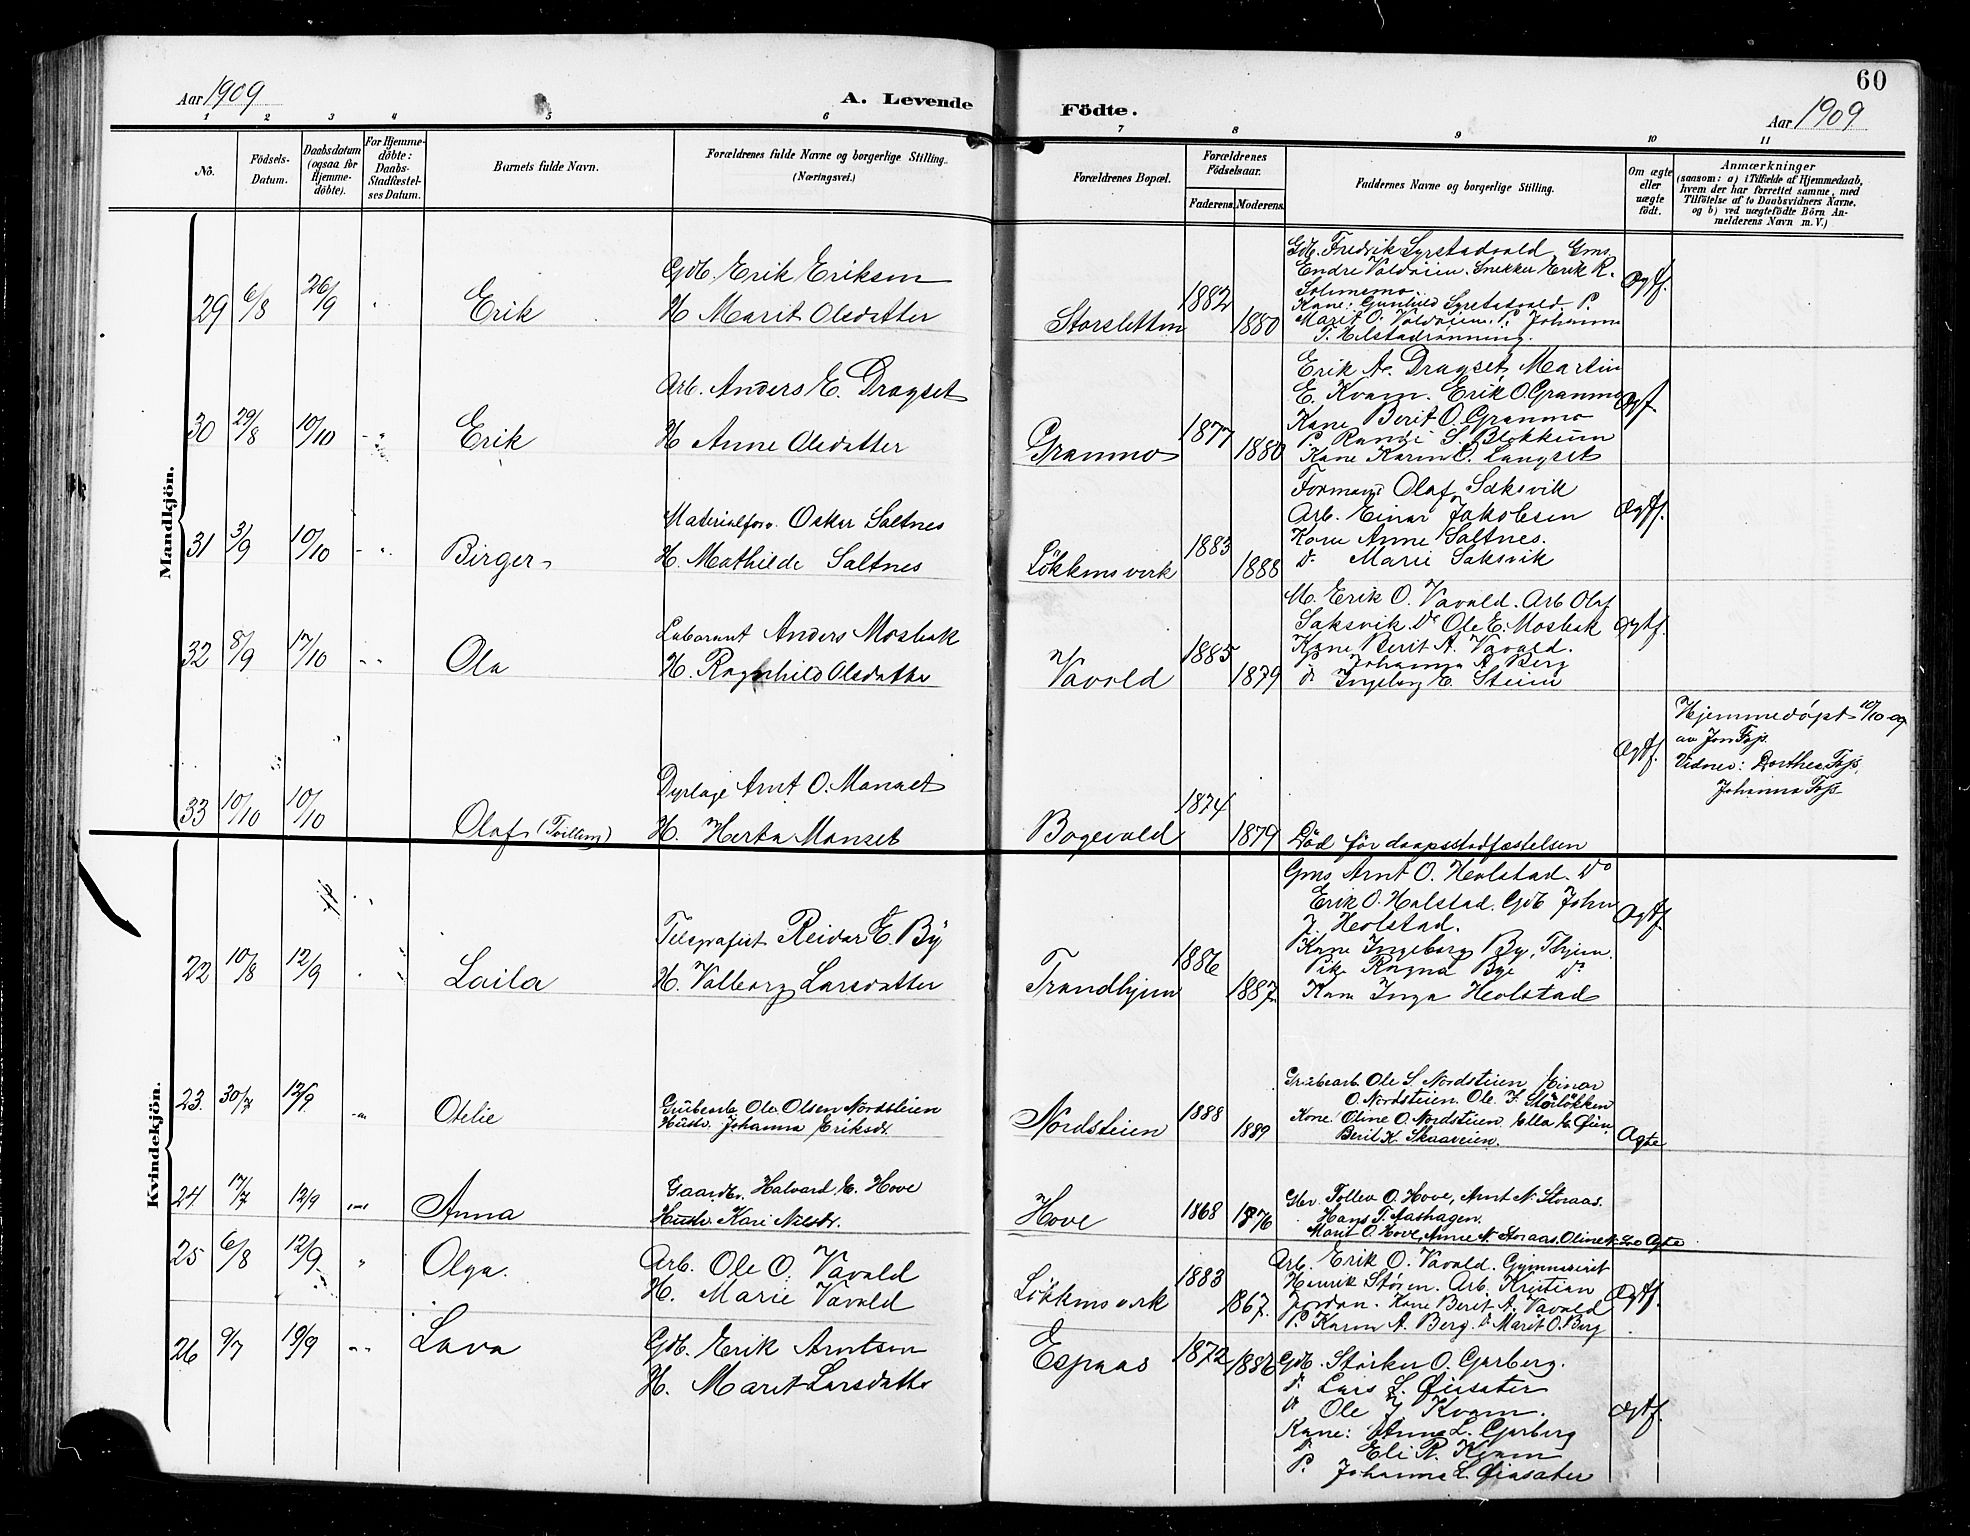 60
Aar 1909
A. Levende
Födte.
Aar 1909
1 2 3 4 5 6 7 8 9 10 11
No.
Födsels-
Datum.
Daabsdatum
(ogsaa for
Hjemme-
döbte).
For Hjemme-
döbte:
Daabs-
Stadfæstel-
ses Datum.
Barnets fulde Navn.
Forældrenes fulde Navne og borgerlige Stilling.
(Næringsvei.)
Forældrenes Bopæl.
Forældrenes
Födselsaar.
Faderens.
Moderens.
Faddernes Navne og borgerlige Stilling.
Om ægte
eller
uægte
født.
Anmærkninger
(saasom: a) i Tilfælde af Hjemmedaab,
hvem der har forrettet samme, med
Tilföielse af to Daabsvidners Navne,
og b) ved uægtefödte Börn An-
melderens Navn m. V.)
Mandkjön.
29 6/8 26/9 Erik
Gdb. Erik Eriksen
H Marit Olsdatter
Storsletten 1882 1880
Gdb. Fredrik Syrstadvold, Gms.
Endre Voldøien. Snekker Erik R.
Solumsmo.
Kone: Gunhild Syrstadvold P.
Marit O. Voldøien. P. Johanna
T. Holstadrønning.
Ægtf.
30 29/8 10/10 Erik
Arb. Anders E. Dragset
H Anne Olsdatter
Granmo 1877 1880
Erik A. Dragset, Martin
E. Kvam. Erik O. Granmo
Kone Berit O. Granmo
P. Randi S. Blokkum
Kone Karen O. Langset
Ægtf
31 3/9 10/10 Birger
Materialforv. Oskar Saltnes
H. Mathilde Saltnes
Løkkens verk 1883 1888
Formand Olaf Saksvik
Arb. Einar Jakobsen
Kone Anne Saltnes.
do Marie Saksvik
Ægtf.
32 8/9 17/10 Ola
Laborant Anders Mosbak
H. Ragnhild Olsdatter
Vavold 1885 1879
M. Erik O. Vavold. Arb Olaf
Saksvik. do Ole E. Mosbak
Kone Berit A. Vavold.
P. Johanna A. Berg
do Ingeborg E. Steien
Ægtf.
33 10/10 10/10 Olaf (Tvilling)
Dyrlæge Arnt O. Manset
H. Herta Manset
Bogevold 1874 1879
Død før daapsstadfæstelsen
Ægtf.
Hjemmedøpt 10/10 09
av Jon Fojs.
Vidner: Dorthea Fojs,
Johanna Fojs
Kvindekjön.
22 10/8 12/9 Laila
Telegrafist Reidar E. By
H. Valborg Larsdatter
Trondhjem 1886 1887.
Gms Arnt O. Holstad. do
Erik O. Holstad. Gdb John
J. Holstad.
Kone Ingeborg By, Thjem.
Pike Ragna Bye do
Kone Inga Holstad
Ægtf.
23. 30/7 12/9 Otelie
Grubearb. Ole Olsen Nordsteien
Hustr. Johanna Eriksdt.
Nordsteien 1888 1889
Grubearb. Ole S. Nordsteien Einar
O. Nordsteien. Ole J. Storløkken
Kone: Oline O. Nordsteien Ella E. Øien,
Beril K. Skaaveien.
Ægte
24 17/7 12/9 Anna
Gaardbr. Halvard E. Hove
Hustr. Kari Nilsdt.
Hove 1868 1876
Gbr Tollev O. Hove, Arnt N. Storaas.
Hans T. Aashagen.
Marit O. Hove, Anne N. Storaas, Oline N. Loe Ægte
25 6/8 12/9 Olga.
Arb. Ole O. Vavold
H. Marie Vavold
Løkkens verk 1883 1867.
Arb. Erik O. Vavold. Gymnasiast
Henrik Støren. Arb. Kristian
Jordan. Kone Berit A. Vavold
P. Karen A. Berg. do Marit O. Berg
Ægtf.
26 9/7 19/9 Lava
Gdb. Erik Arntsen
H. Marit Larsdatter
Espaas 1872 1886
Gdb. Størker O. Garberg.
do Lars L. Øiasæter
do Ole J Kvam.
Kone: Anne L. Garberg
do Eli R. Kvam
P. Johanna L. Øiasæter
Ægtf.